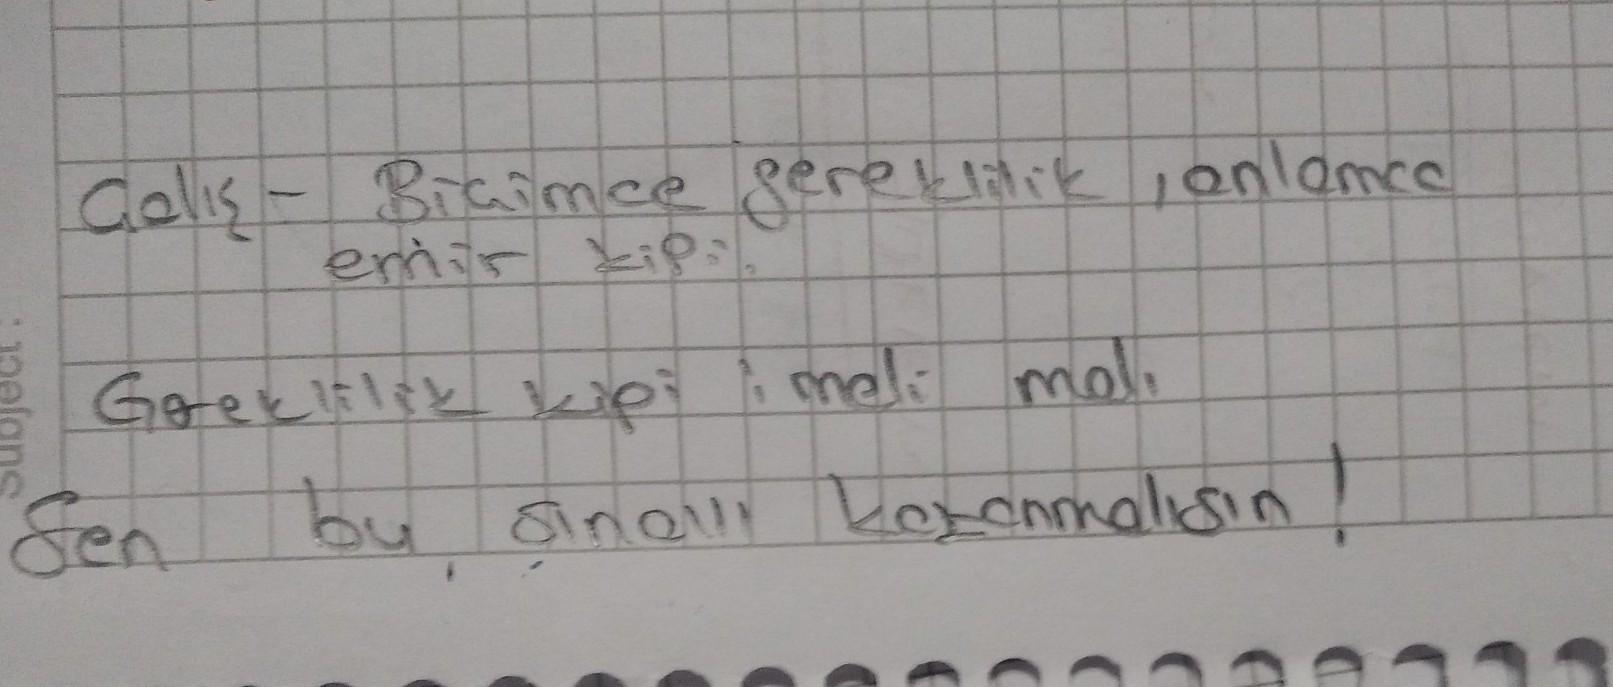 Çalış - Biçimce gereklilik, anlamca
emir kipi.
Gereklilik kipi : meli malı
Sen bu sınavı kazanmalısın!
Subject: